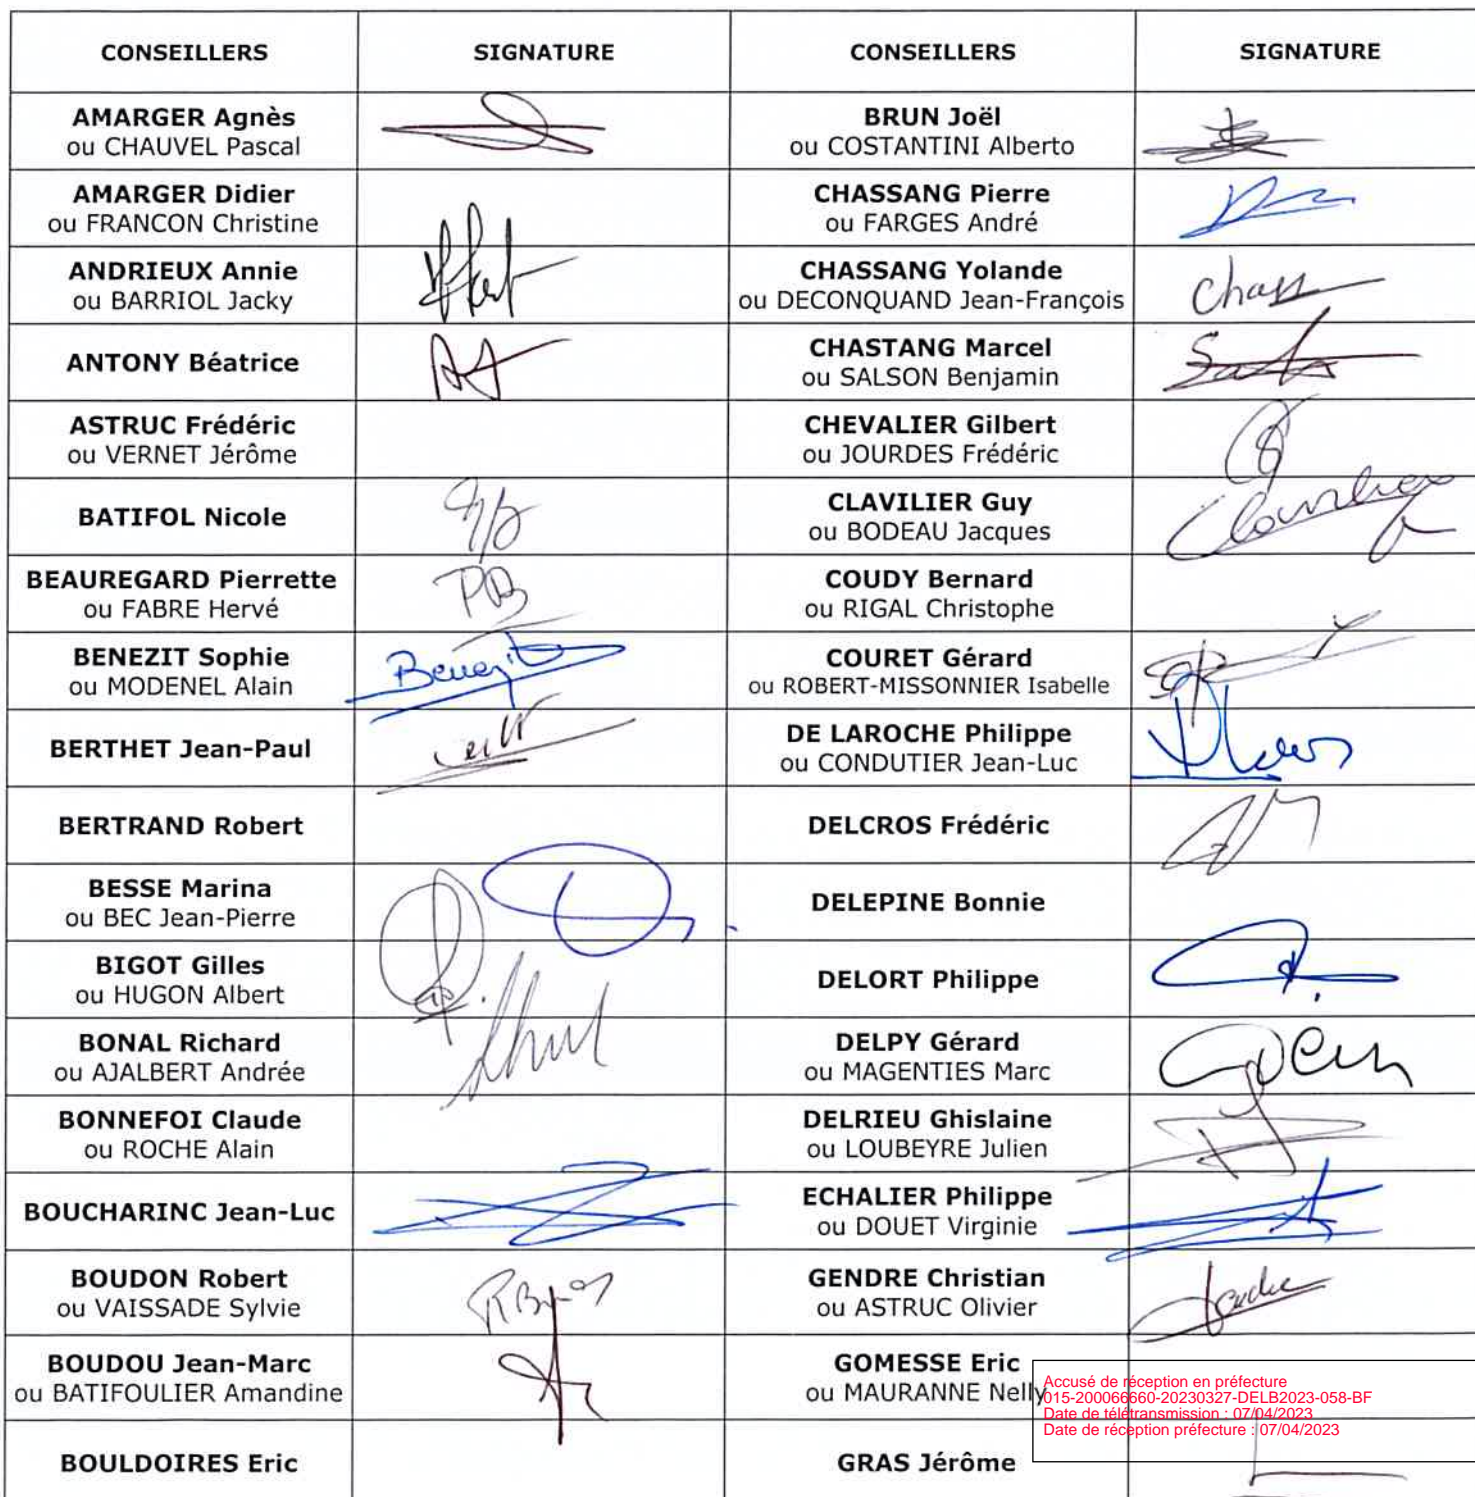 CONSEILLERS SIGNATURE CONSEILLERS SIGNATURE
AMARGER Agnès
ou CHAUVEL Pascal
BRUN Joël
ou COSTANTINI Alberto
AMARGER Didier
ou FRANCON Christine
CHASSANG Pierre
ou FARGES André
ANDRIEUX Annie
ou BARRIOL Jacky
CHASSANG Yolande
ou DECONQUAND Jean-François
Chass
ANTONY Béatrice
CHASTANG Marcel
ou SALSON Benjamin
ASTRUC Frédéric
ou VERNET Jérôme
CHEVALIER Gilbert
ou JOURDES Frédéric
BATIFOL Nicole
CLAVILIER Guy
ou BODEAU Jacques
BEAUREGARD Pierrette
ou FABRE Hervé
PB
COUDY Bernard
ou RIGAL Christophe
BENEZIT Sophie
ou MODENEL Alain
Benezit
COURET Gérard
ou ROBERT-MISSONNIER Isabelle
BERTHET Jean-Paul
DE LAROCHE Philippe
ou CONDUTIER Jean-Luc
BERTRAND Robert
DELCROS Frédéric
BESSE Marina
ou BEC Jean-Pierre
DELEPINE Bonnie
BIGOT Gilles
ou HUGON Albert
DELORT Philippe
BONAL Richard
ou AJALBERT Andrée
DELPY Gérard
ou MAGENTIES Marc
BONNEFOI Claude
ou ROCHE Alain
DELRIEU Ghislaine
ou LOUBEYRE Julien
BOUCHARINC Jean-Luc
ECHALIER Philippe
ou DOUET Virginie
BOUDON Robert
ou VAISSADE Sylvie
GENDRE Christian
ou ASTRUC Olivier
BOUDOU Jean-Marc
ou BATIFOULIER Amandine
GOMESSE Eric
ou MAURANNE Nelly
Accusé de réception en préfecture
015-200066660-20230327-DELB2023-058-BF
Date de télétransmission : 07/04/2023
Date de réception préfecture : 07/04/2023
BOULDOIRES Eric
GRAS Jérôme